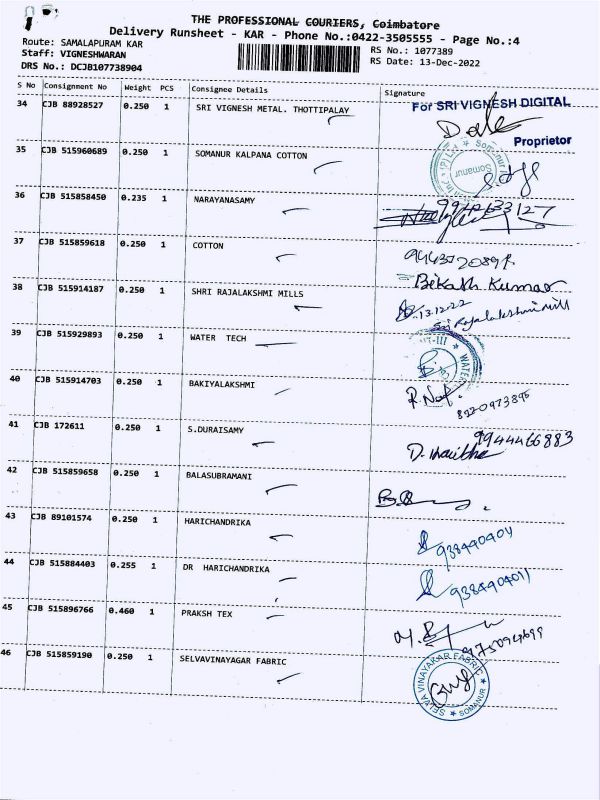 THE PROFESSIONAL COURIERS, Coimbatore
Delivery Runsheet - KAR - Phone No.:0422-3505555 - Page No.:4
Route: SAMALAPURAM KAR
Staff: VIGNESHWARAN
DRS No.: DCJB107738904
RS No.: 1077389
RS Date: 13-Dec-2022
S No Consignment No Weight PCS Consignee Details Signature
34 CJB 88928527 0.250 1 SRI VIGNESH METAL. THOTTIPALAY
For SRI VIGNESH DIGITAL
Proprietor
35 CJB 515960689 0.250 1 SOMANUR KALPANA COTTON
Somanur
36 CJB 515858450 0.235 1 NARAYANASAMY
37 CJB 515859618 0.250 1 COTTON
Bikash Kumar
38 CJB 515914187 0.250 1 SHRI RAJALAKSHMI MILLS
13.12.22
Sri Rajalakshmi Mill
39 CJB 515929893 0.250 1 WATER TECH
40 CJB 515914703 0.250 1 BAKIYALAKSHMI
8220973895
41 CJB 172611 0.250 1 S.DURAISAMY
9944466883
42 CJB 515859658 0.250 1 BALASUBRAMANI
43 CJB 89101574 0.250 1 HARICHANDRIKA
44 CJB 515884403 0.255 1 DR HARICHANDRIKA
9384404011
45 CJB 515896766 0.460 1 PRAKSH TEX
46 CJB 515859190 0.250 1 SELVAVINAYAGAR FABRIC
SELVA VINAYAKAR FABRIC
SOMANUR